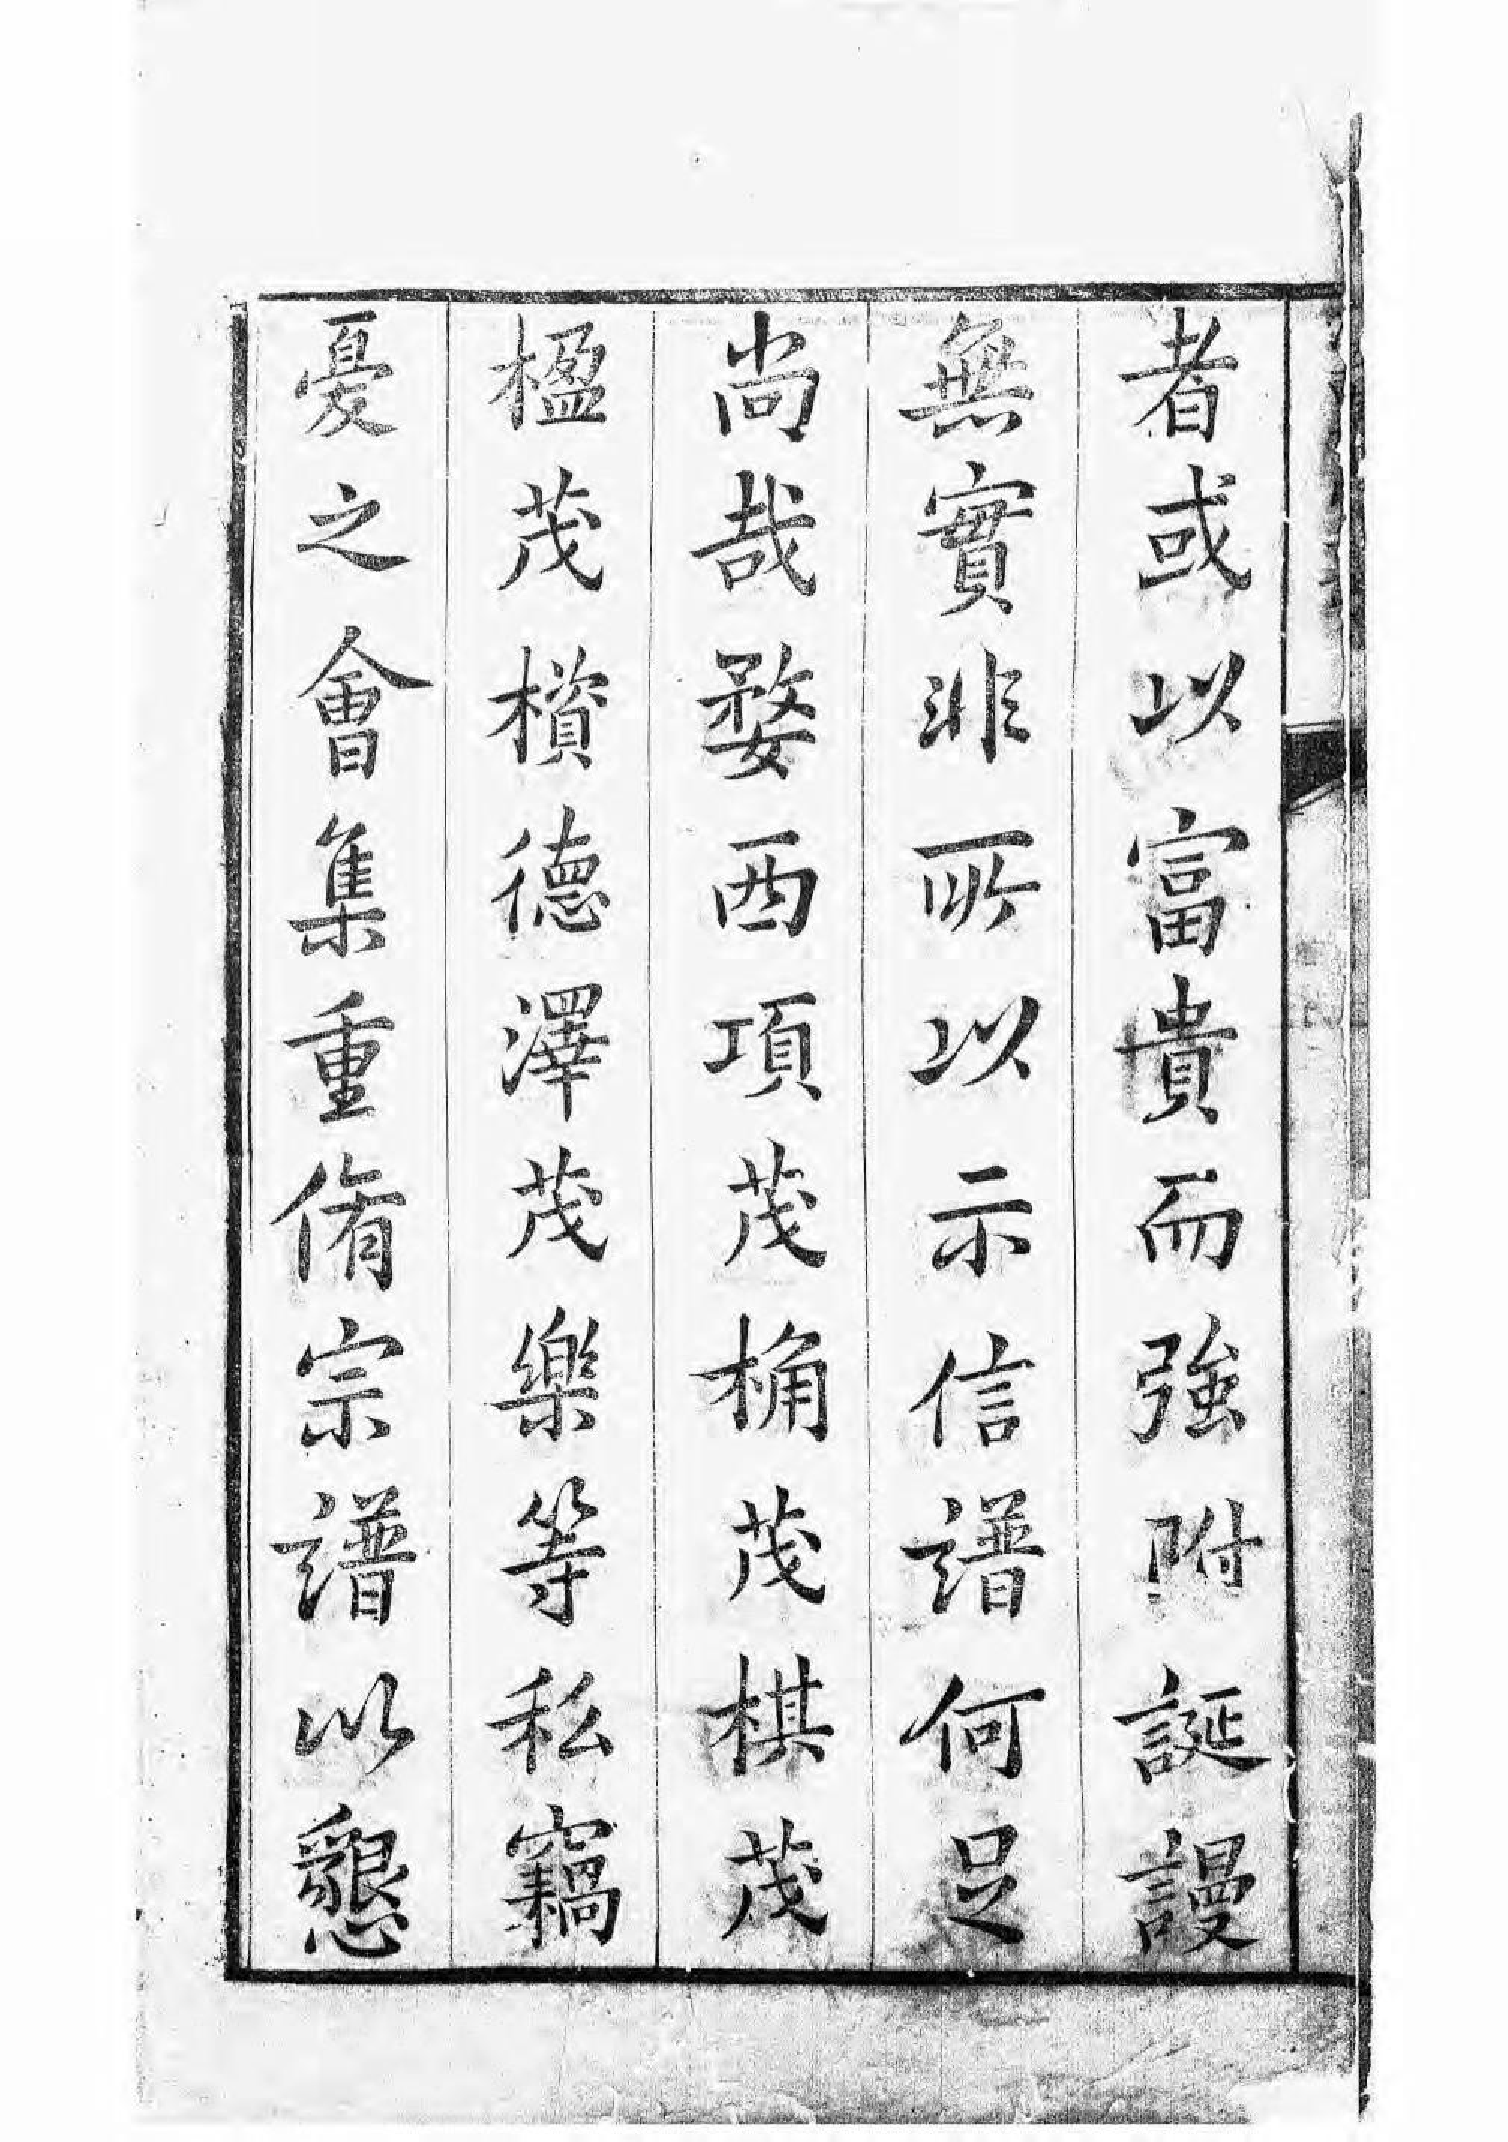 者或以富貴而強附誕謾
無實非所以示信譜何足
尚哉婺西項茂桷茂棋茂
楹茂櫝德澤茂樂等私竊
憂之會集重脩宗譜以懇